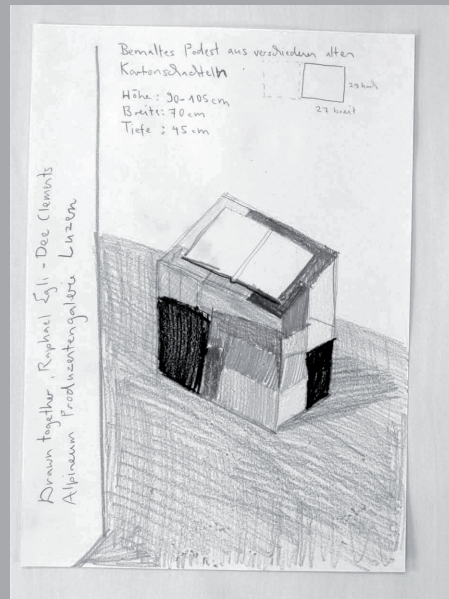 Bemaltes Podest aus verschieden alten
Kartonschachteln
Höhe : 90-105cm
Breite: 70cm
Tiefe : 45cm
29 hoch
27 breit
Drawn together, Raphael Egli - Dee Clements
Alpineum Produzentengalerie Luzern